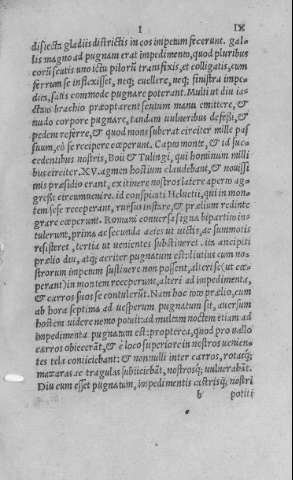 I IX
disiecta gladiis districtis in eos impetum fecerunt. gal-
lis magno ad pugnam erat impedimento, quod pluribus
eorũ scutis uno ictu pilorũ transfixis, et colligatis, cum
ferrum se inflexisset, neq; euellere, neq; sinistra impe-
dita, satis commode pugnare poterant. Multi ut diu ia-
ctato brachio præoptarent scutum manu emittere, &
nudo corpore pugnare, tandem uulneribus defessi, &
pedem referre, & quod mons suberat circiter mille pas
suum, eò se recipere cœperunt. Capto monte, & id suc-
cedentibus nostris, Boii & Tulingi, qui hominum milli
bus circiter. XV. agmen hostium claudebant, & nouissi
mis præsidio erant, ex itinere nostros latere aperto ag-
gressi circumuenire. id conspicati Heluetii, qui in mon-
tem sese receperant, rursus instare, & prælium redinte
grare cœperunt. Romani conuersa signa bipartito in-
tulerunt, prima ac secunda acies ut uictis, ac summotis
resisteret, tertia ut uenientes substineret. ita ancipiti
prælio diu, atq; acriter pugnatum est: diutius cum no-
strorum impetum sustinere non possent, alteri se (ut cœ-
perant) in montem receperunt, alteri ad impedimenta,
& carros suos se contulerũt. Nam hoc toto prælio, cum
ab hora septima ad uesperum pugnatum sit, auersum
hostem uidere nemo potuit: ad multam noctem etiam ad
impedimenta pugnatum est: propterea, quod pro uallo
carros obiecerãt, & è loco superiore in nostros uenien-
tes tela coniiciebant: & nonnulli inter carros, rotasq;
mataras ac tragulas subiiciebãt, nostrosq; uulnerabãt.
Diu cum esset pugnatum, impedimentis castrisq; nostri
b potiti